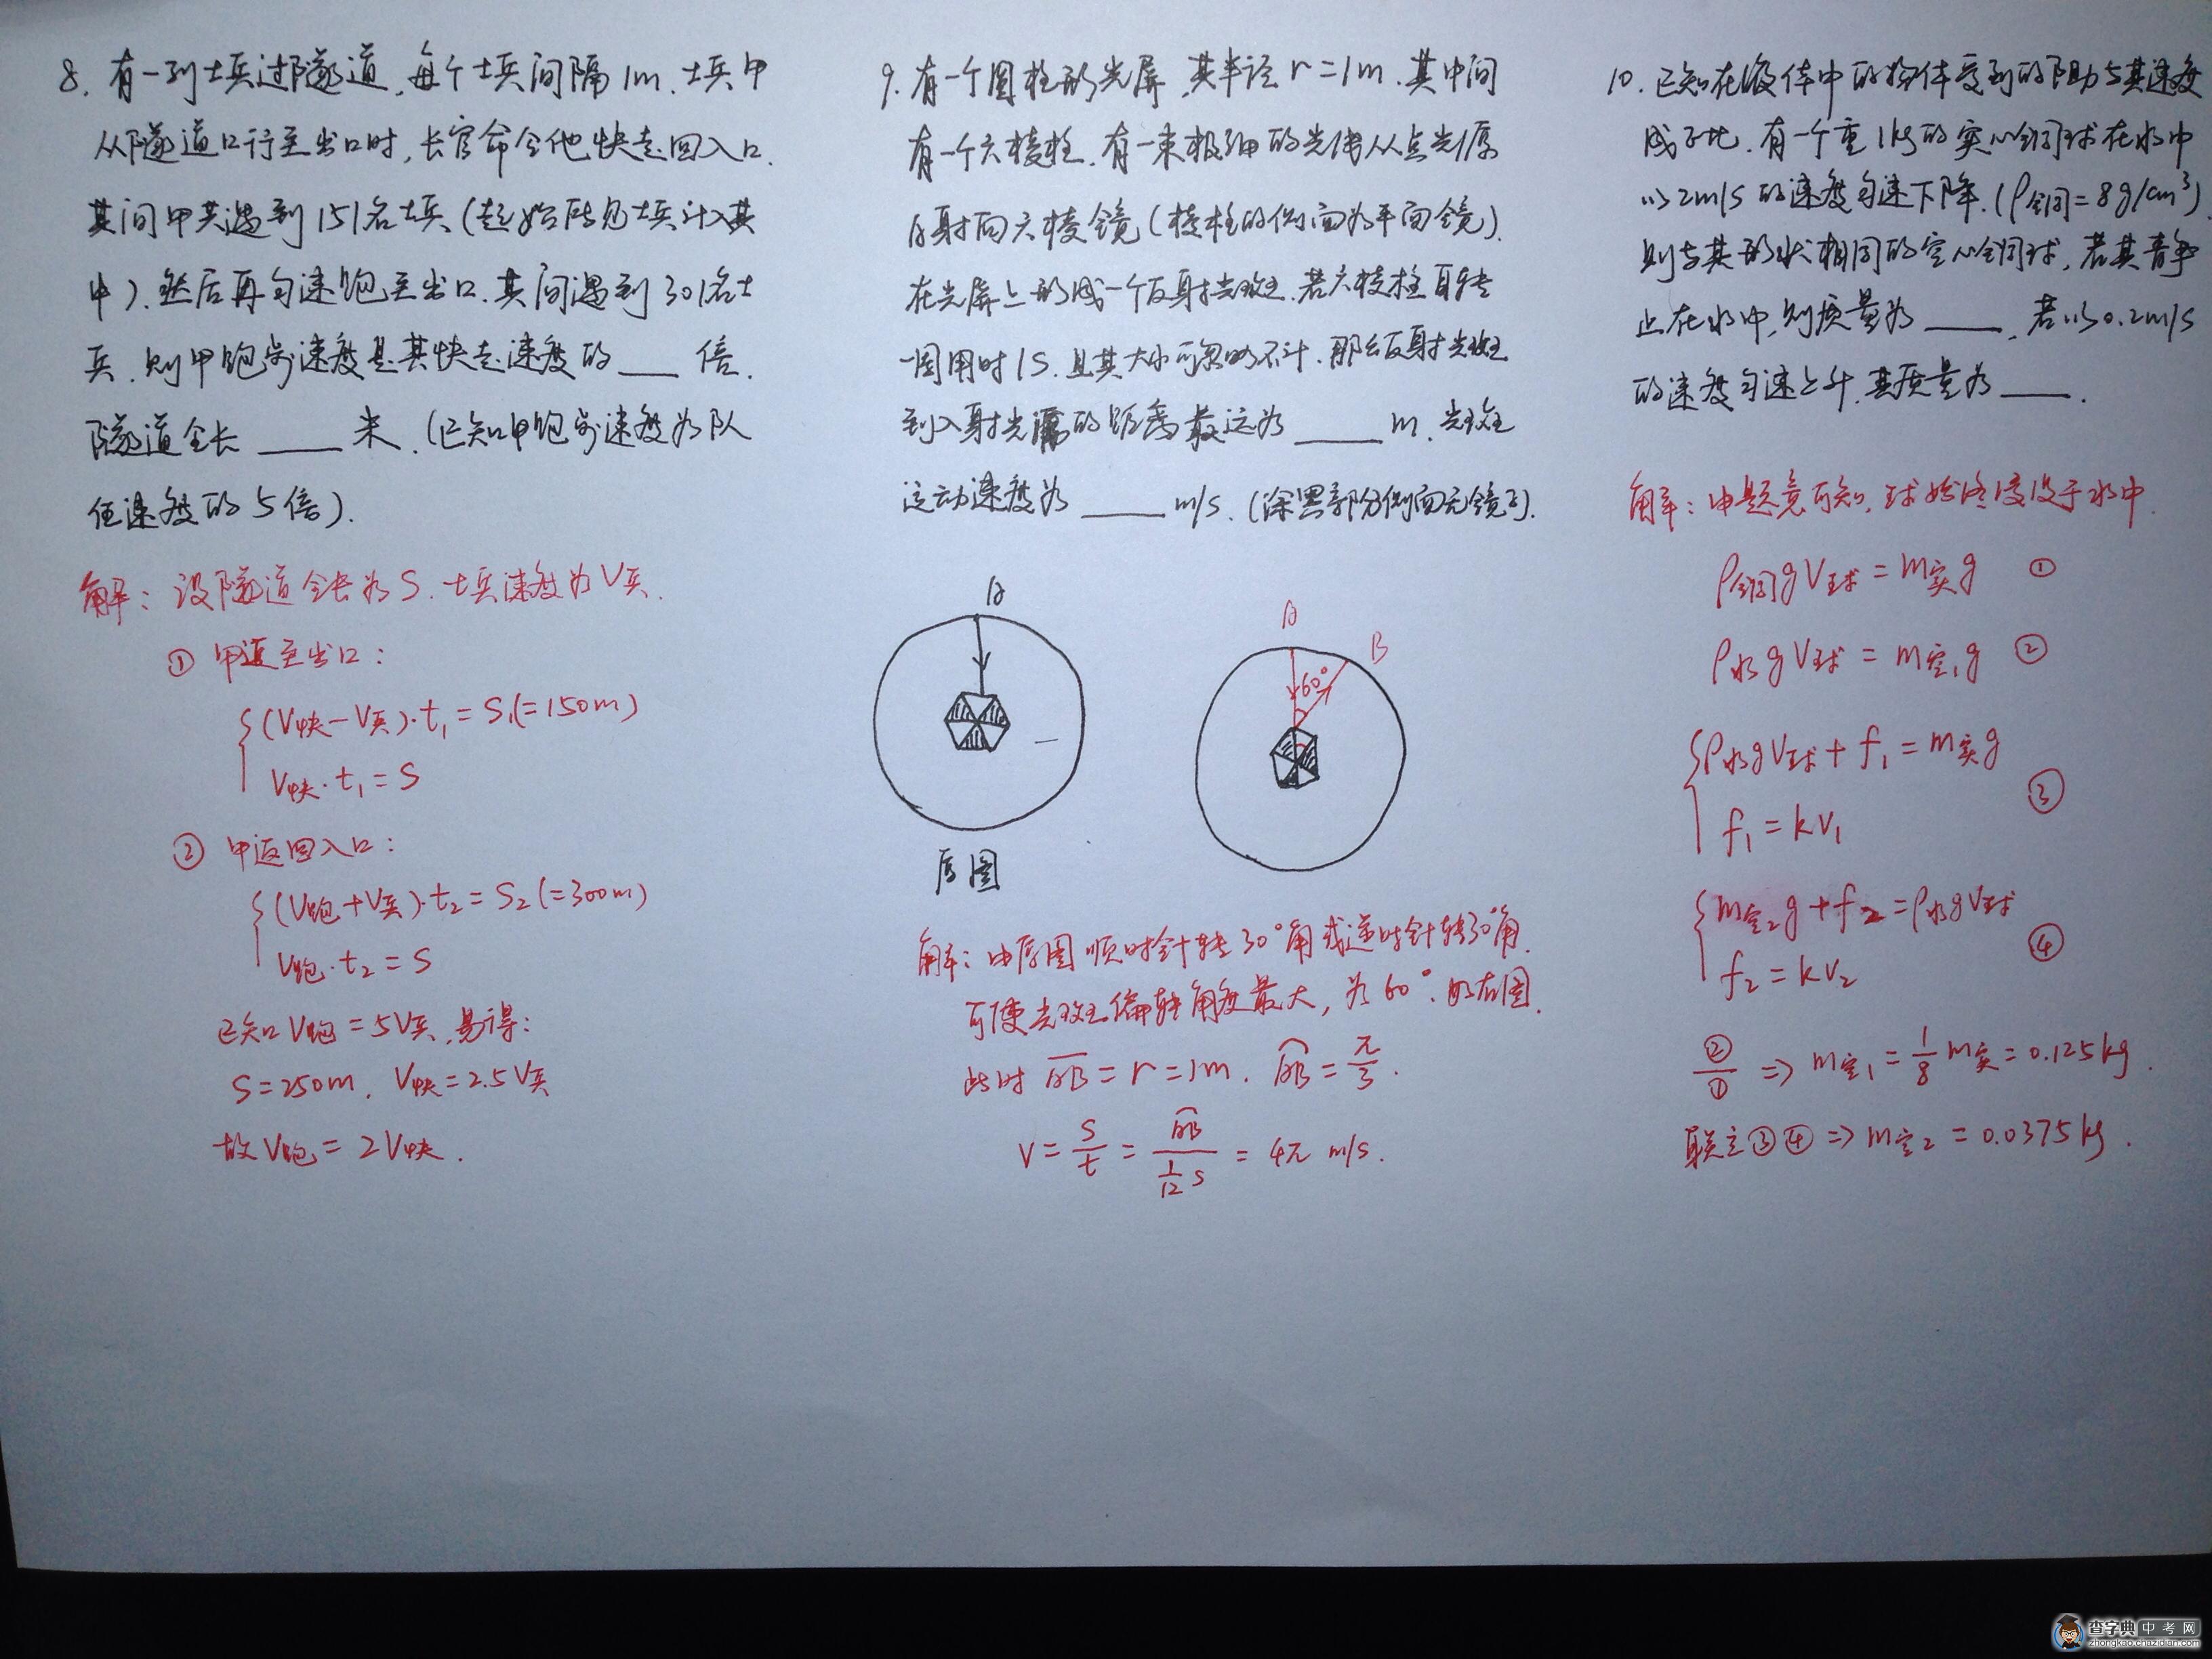 8. 有一列士兵过隧道,每个士兵间隔1m.士兵甲
从隧道口行至出口时,长官命令他快走回入口.
其间甲共遇到151名士兵(起始时见士兵计入其
中).然后再匀速跑至出口.其间遇到301名士
兵.则甲跑步速度是其快走速度的____倍.
隧道全长____米.(已知甲跑步速度为队
伍速度的5倍).
解:设隧道全长为S.士兵速度为V兵.
① 甲返至出口:
(V快-V兵)·t₁=S₁(=150m)
V快·t₁=S
② 甲返回入口:
(V跑+V兵)·t₂=S₂(=300m)
V跑·t₂=S
已知V跑=5V兵,易得:
S=250m, V快=2.5V兵
故V跑=2V快.
9. 有一个圆柱形光屏,其半径r=1m.其中间
有一个六棱柱.有一束极细的光线从点光源
A射向六棱镜(棱柱的侧面为平面镜).
在光屏上形成一个反射光斑.若六棱柱自转
一周用时1s.且其大小可忽略不计.那么反射光斑
到入射光源的距离最远为____m.光斑
运动速度为____m/s.(涂黑部分侧面无镜子).
A
原图
A
B
60°
解:由原图顺时针转30°角或逆时针转30°角.
可使光斑偏转角度最大,为60°.如右图.
此时AB=r=1m. AB=π/3.
V=S/t=AB/(1/12 s)=4π m/s.
10. 已知在液体中的物体受到的阻力与其速度
成正比.有一个重1kg的实心铜球在水中
以2m/s的速度匀速下降.(ρ铜=8g/cm³)
则与其形状相同的空心铜球,若其静
止在水中,则质量为____.若以0.2m/s
的速度匀速上升.其质量为____.
解:由题意可知,球始终浸没于水中.
ρ铜gV球=m实g ①
ρ水gV球=m空₁g ②
ρ水gV球+f₁=m实g
f₁=kv₁ ③
m空₂g+f₂=ρ水gV球
f₂=kv₂ ④
②/① ⇒ m空₁=1/8 m实=0.125kg.
联立③④ ⇒ m空₂=0.0375kg.
查字典中考网
zhongkao.chazidian.com